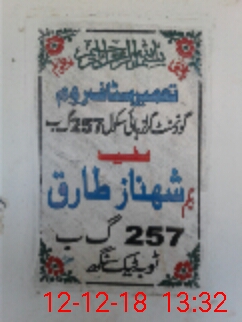 بسم اللہ الرحمن الرحیم
تعمیر سٹاف روم
گورنمنٹ گرلز ہائی سکول 257 گ ب
شہناز طارق
257 گ ب
ٹوبہ ٹیک سنگھ
12-12-18 13:32